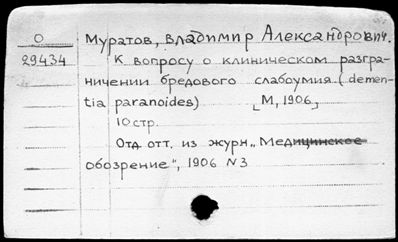 О
29434
Муратов, Владимир Александрович.
К вопросу о клиническом разгра-
ничении бредового слабоумия (demen-
tia paranoides) [М, 1906]
10 стр.
Отд. отт. из журн. „Медицинское
обозрение“, 1906 N3